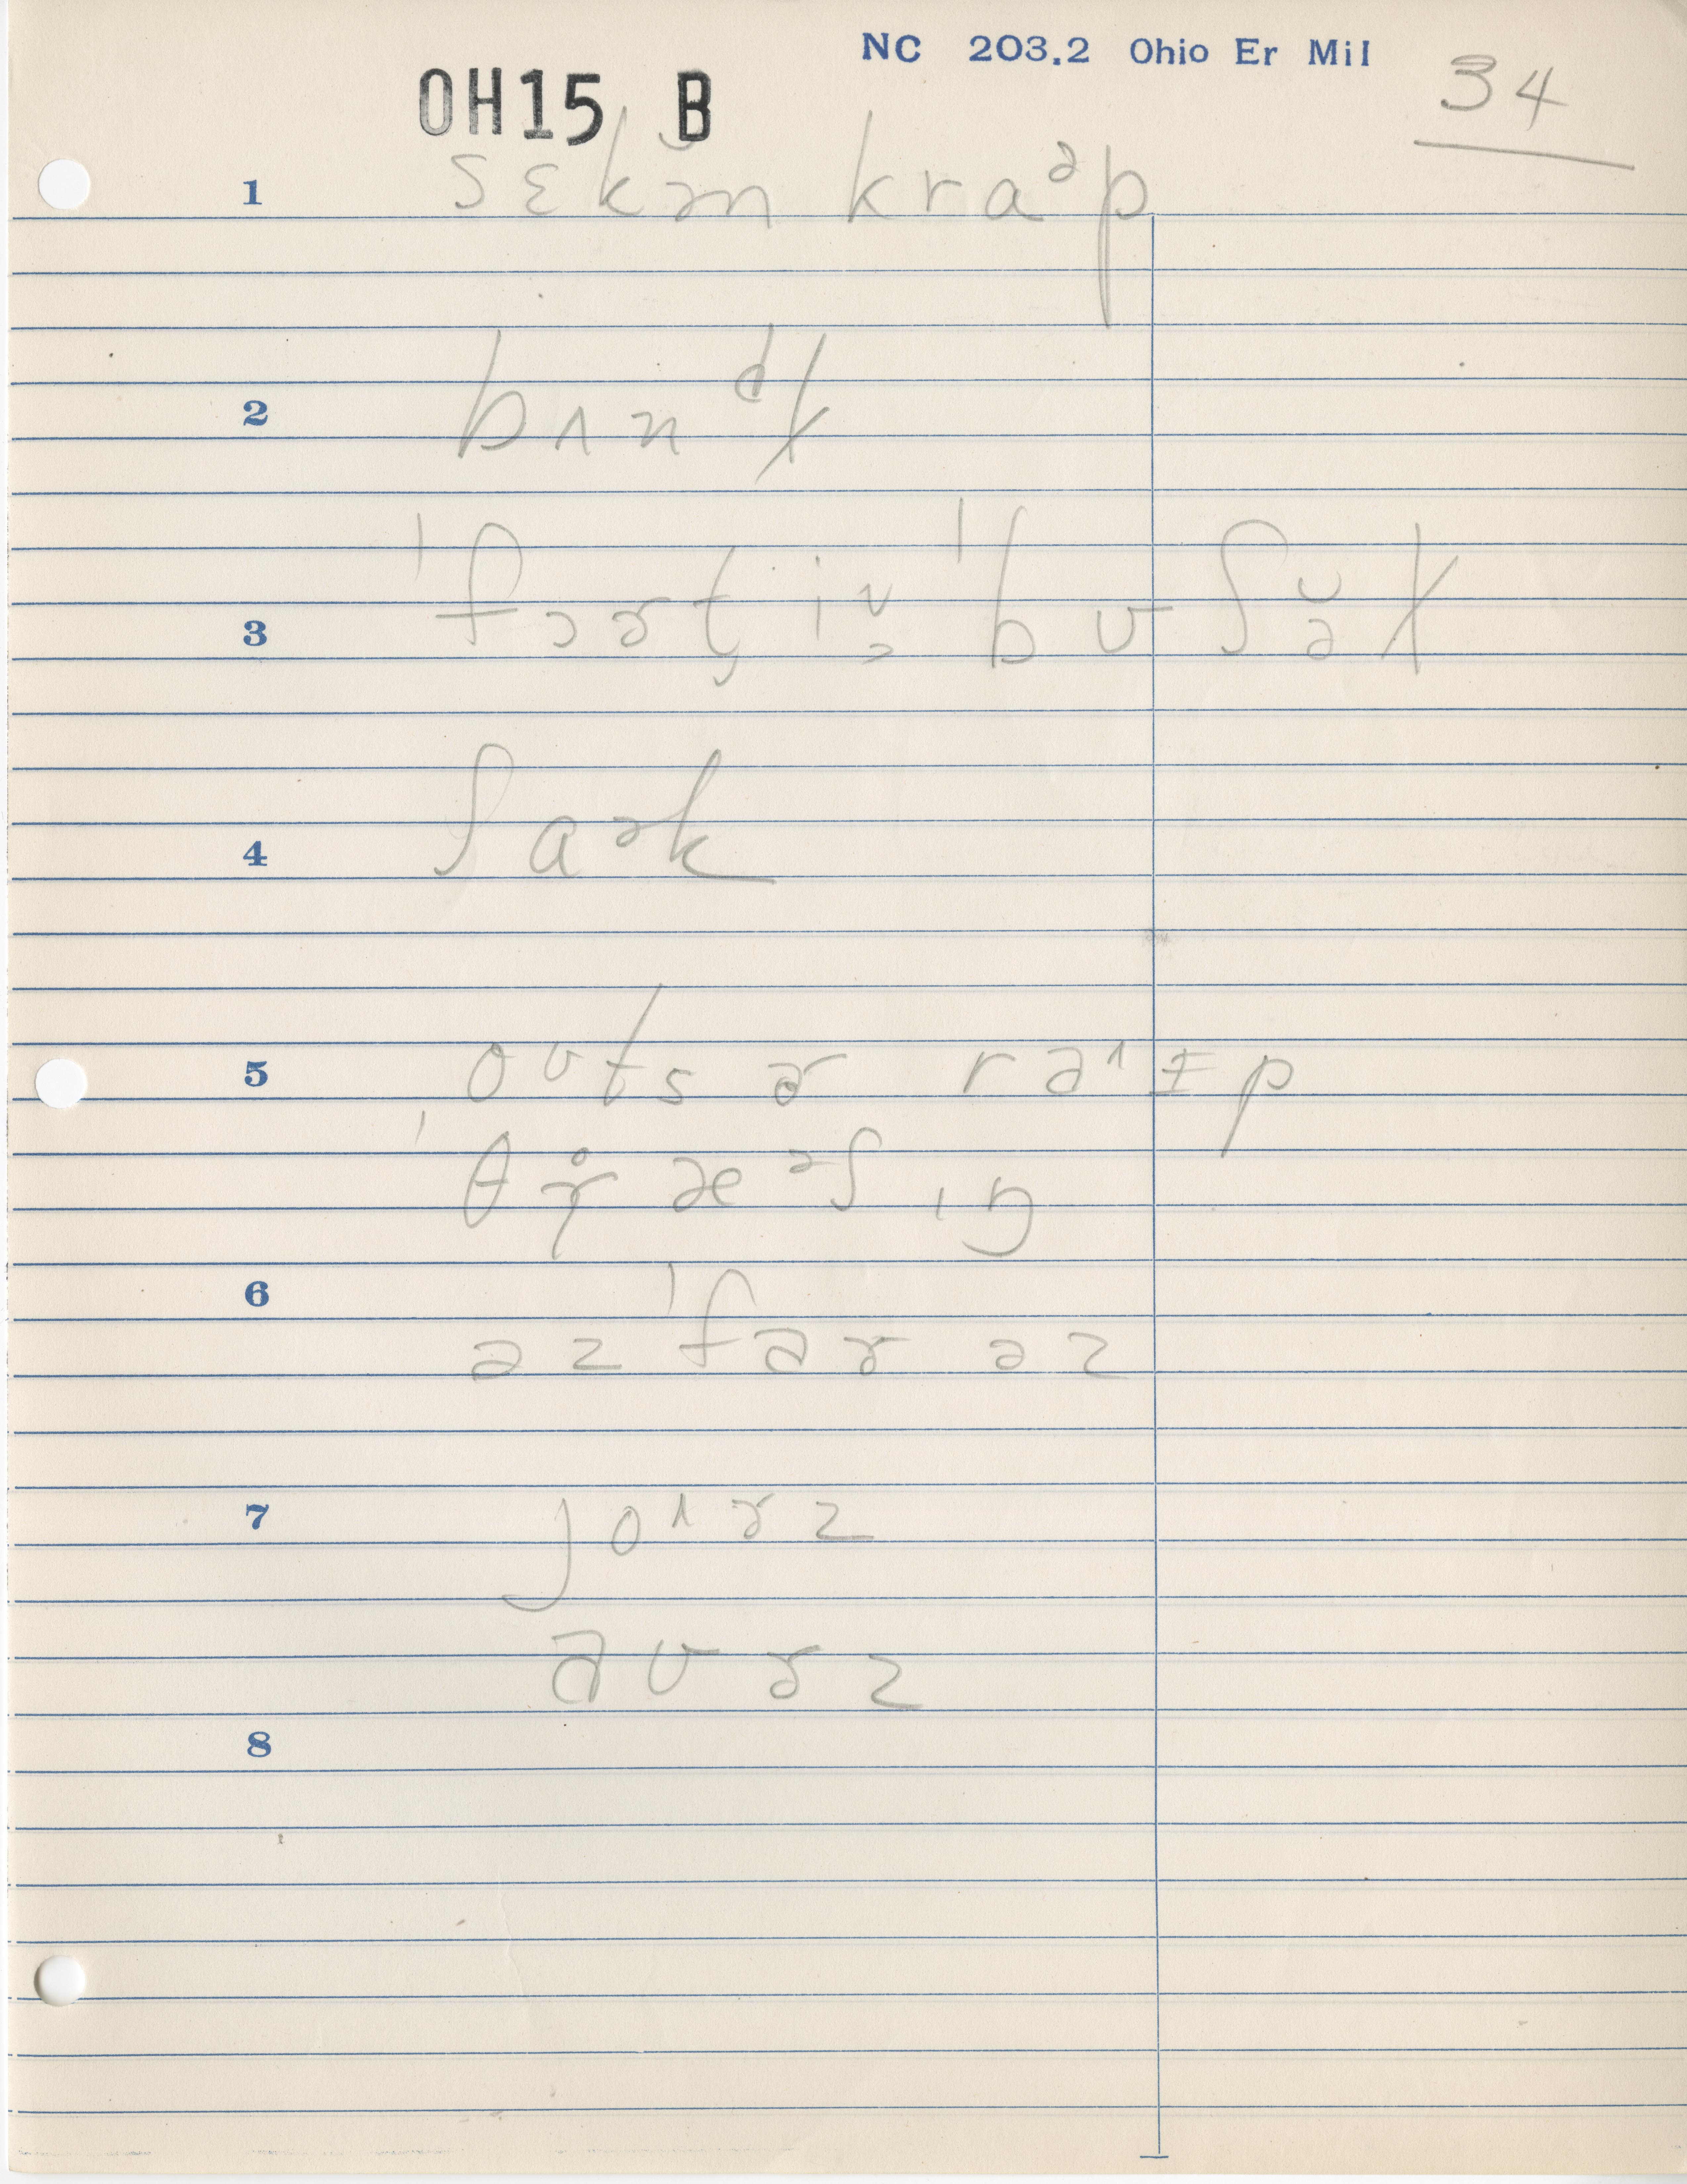 NC 203.2 Ohio Er Mil
34
OH15 B
1 sɛkə̆n kraᵊp
2 bʌnᵈɫ
3 ˈfɔɚt̬iʌ̬ ˈbʊʃə̆ɫ
4 ʃaᵊk
5 oʊts ɚ raᶦɨp
ˈθɚæᵊʃɪŋ
6 əz ˈfaɚ əz
7 joᶺɚz
aʊɚz
8